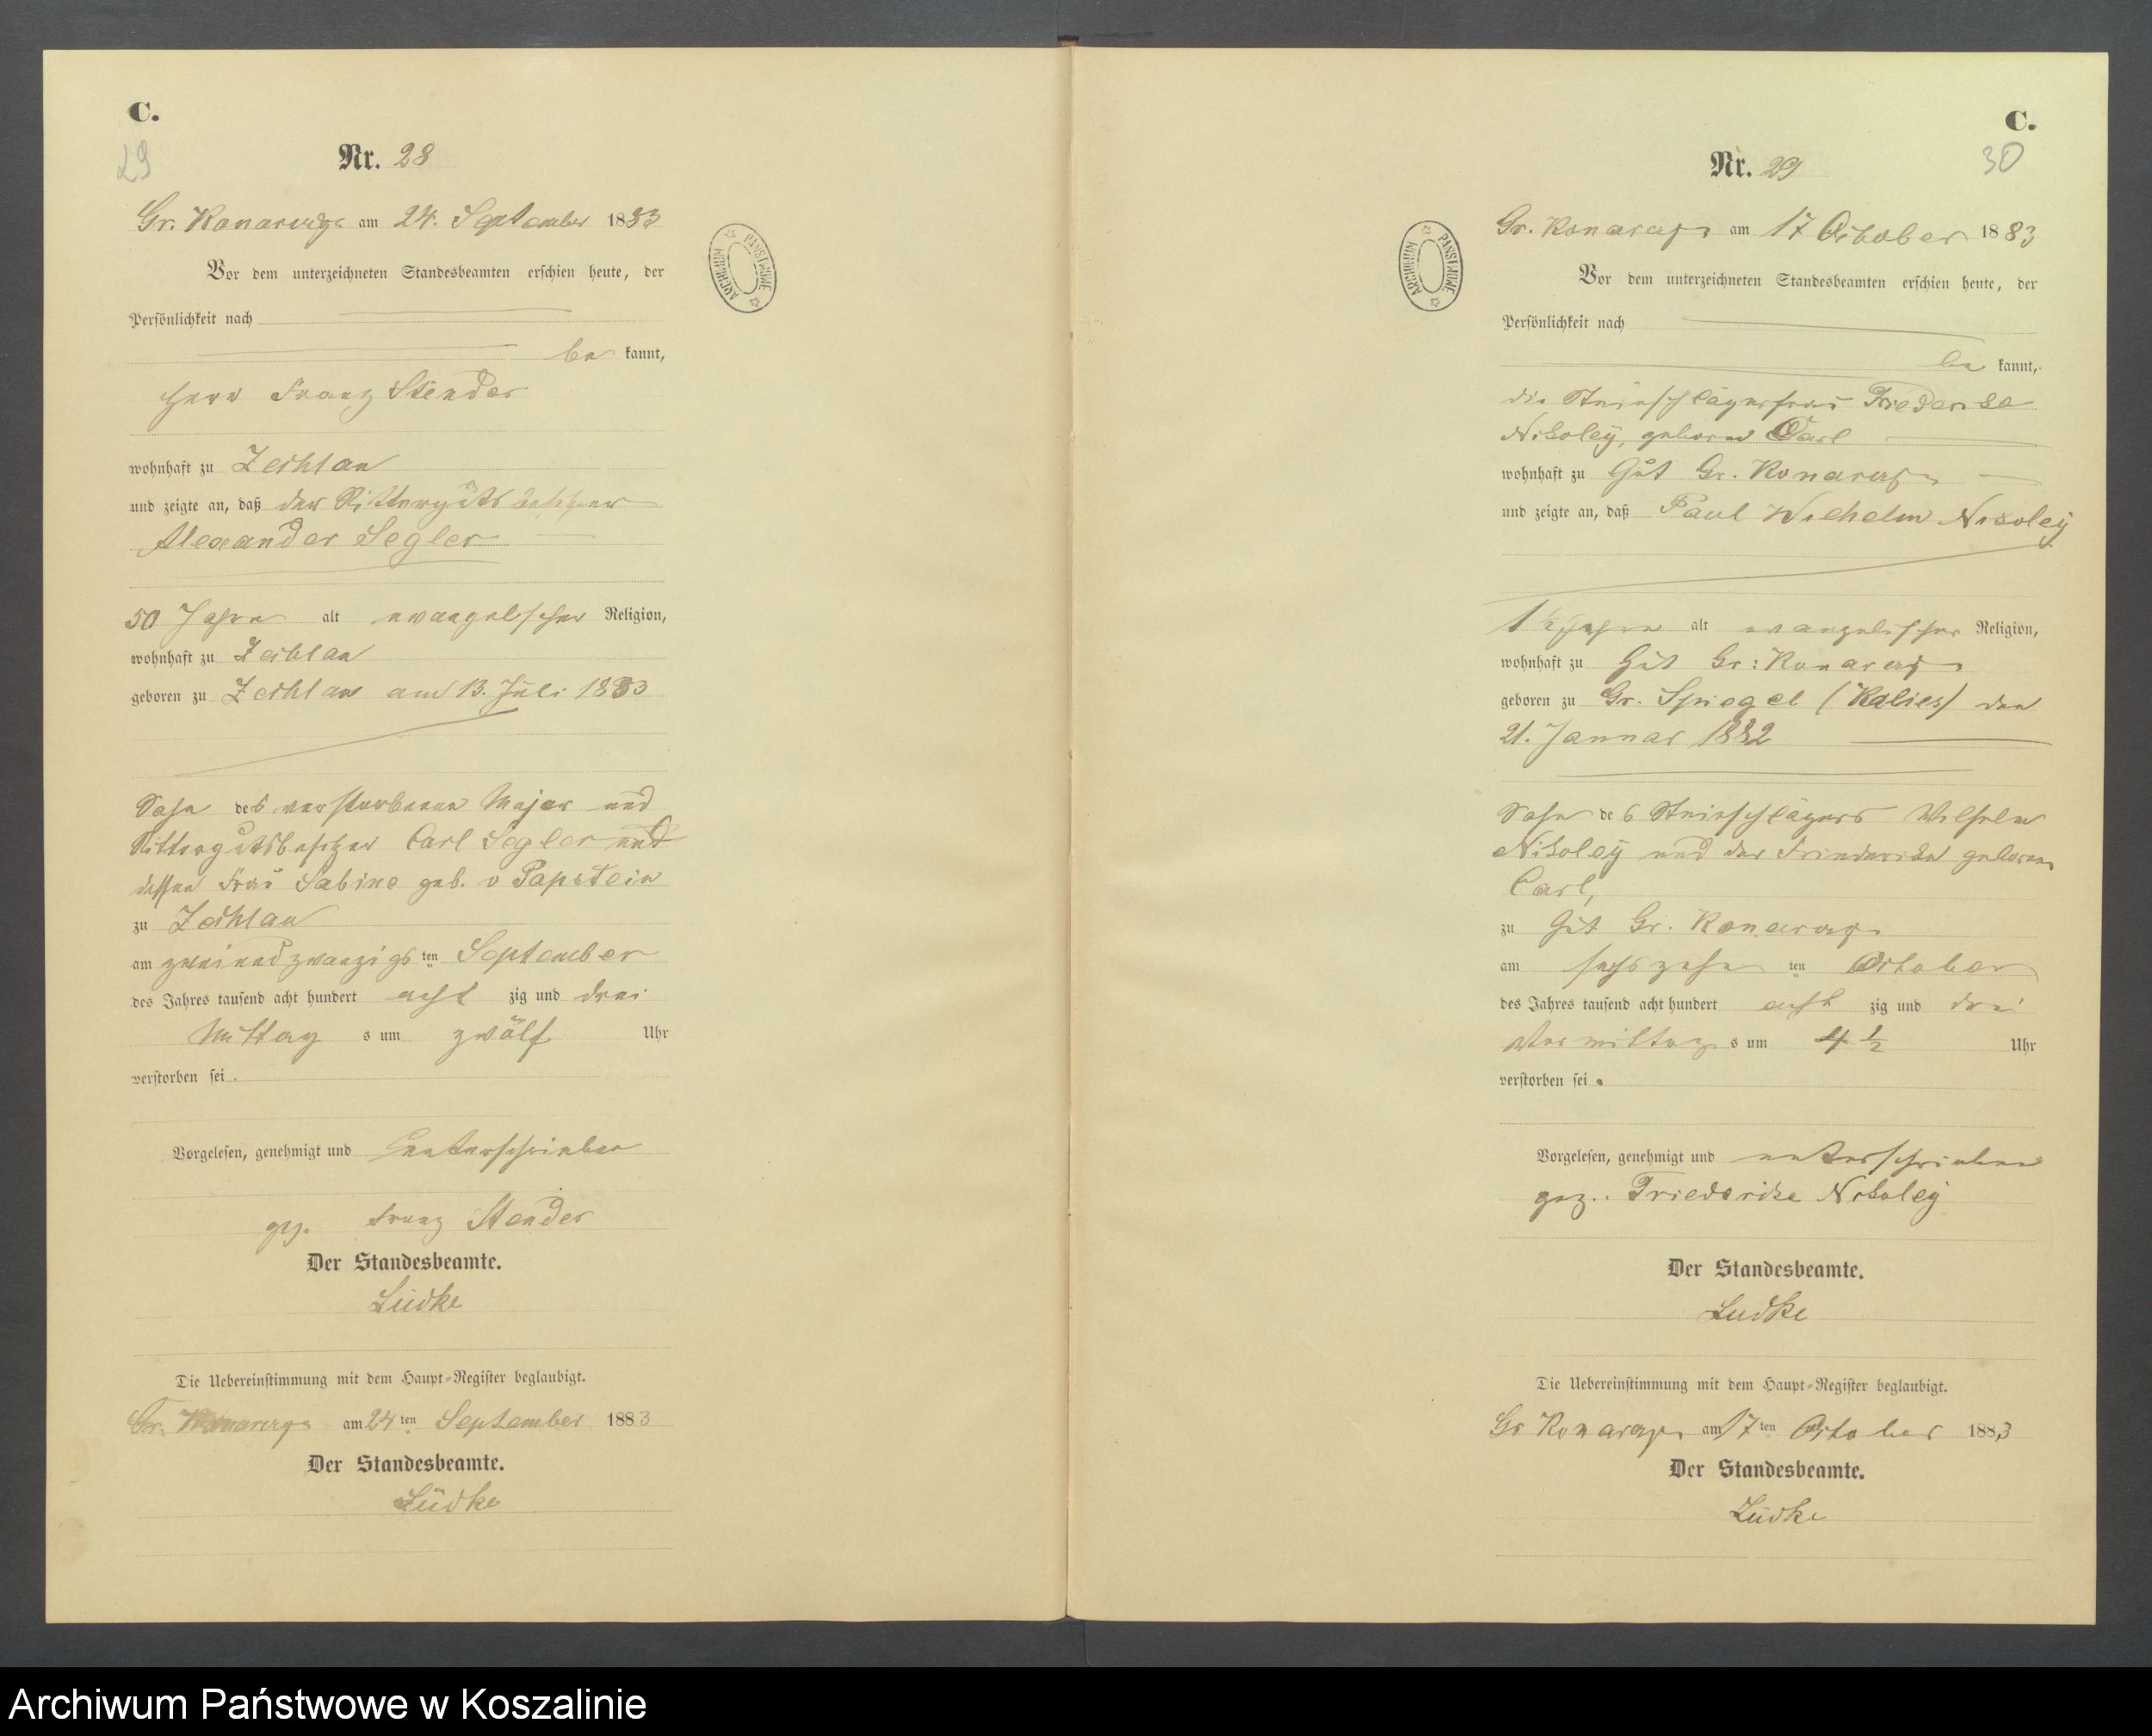 C.
29
Nr. 28
Gr. Konarczyn am 24. September 1883
Vor dem unterzeichneten Standesbeamten erschien heute, der
Persönlichkeit nach
be kannt,
Herr Franz Stender
wohnhaft zu Zechlau
und zeigte an, daß der Rittergutsbesitzer
Alexander Segler
50 Jahre alt evangelischer Religion,
wohnhaft zu Zechlau
geboren zu Zechlau am 13. Juli 1833
Sohn des verstorbenen Major und
Rittergutsbesitzer Carl Segler und
dessen Frau Sabine geb. v Papstein
zu Zechlau
am zweiundzwanzigsten September
des Jahres tausend acht hundert acht zig und drei
Mittag s um zwölf Uhr
verstorben sei.
Vorgelesen, genehmigt und unterschrieben
gez. Franz Stender
Der Standesbeamte.
Lüdke
Die Uebereinstimmung mit dem Haupt-Register beglaubigt.
Gr. Konarczyn am 24ten September 1883
Der Standesbeamte.
Lüdke
ARCHIWUM PAŃSTWOWE
C.
30
Nr. 29
Gr. Konarczyn am 17 October 1883
Vor dem unterzeichneten Standesbeamten erschien heute, der
Persönlichkeit nach
be kannt,
die Steinschlägerfrau Friederike
Nikoley, geborne Carl
wohnhaft zu Gut Gr. Konarczyn
und zeigte an, daß Paul Wilhelm Nikoley
1 1/2 Jahre alt evangelischer Religion,
wohnhaft zu Gut Gr: Konarczyn
geboren zu Gr. Spiegel (Kalies) den
21. Januar 1882
Sohn des Steinschlägers Wilhelm
Nikoley und der Friederike geborene
Carl,
zu Gut Gr. Konarczyn
am sechszehn ten October
des Jahres tausend acht hundert acht zig und drei
Vormittag s um 4 1/2 Uhr
verstorben sei.
Vorgelesen, genehmigt und unterschrieben
gez. Friederike Nikoley
Der Standesbeamte.
Ludke
Die Uebereinstimmung mit dem Haupt-Register beglaubigt.
Gr Konarczyn am 17ten October 1883
Der Standesbeamte.
Lüdke
ARCHIWUM PAŃSTWOWE
Archiwum Państwowe w Koszalinie